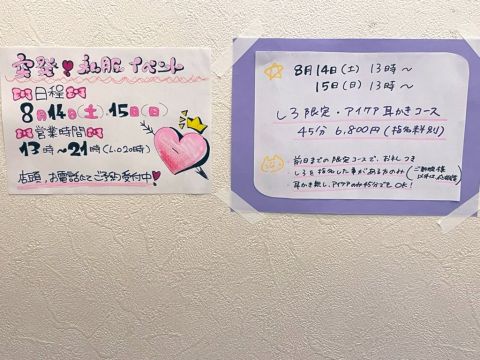 突発♥私服イベント
日程
8月14日(土).15日(日)
営業時間
13時~21時(L.O20時)
店頭、お電話にてご予約受付中!
8月14日(土) 13時~
15日(日) 13時~
しろ限定・アイケア耳かきコース
45分 6,800円(指名料別)
前日までの限定コースで、おれしつき
しろを指名した事がある方のみ
耳かき無し、アイケアのみ45分でもOK!